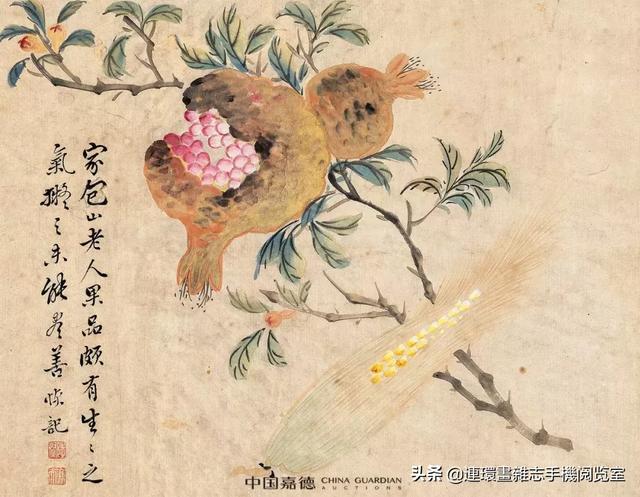 家包山老人果品頗有生〻之
氣擬之未能盡善 記
中国嘉德 CHINA GUARDIAN
AUCTIONS
头条 @連環畫雜志手機阅览室